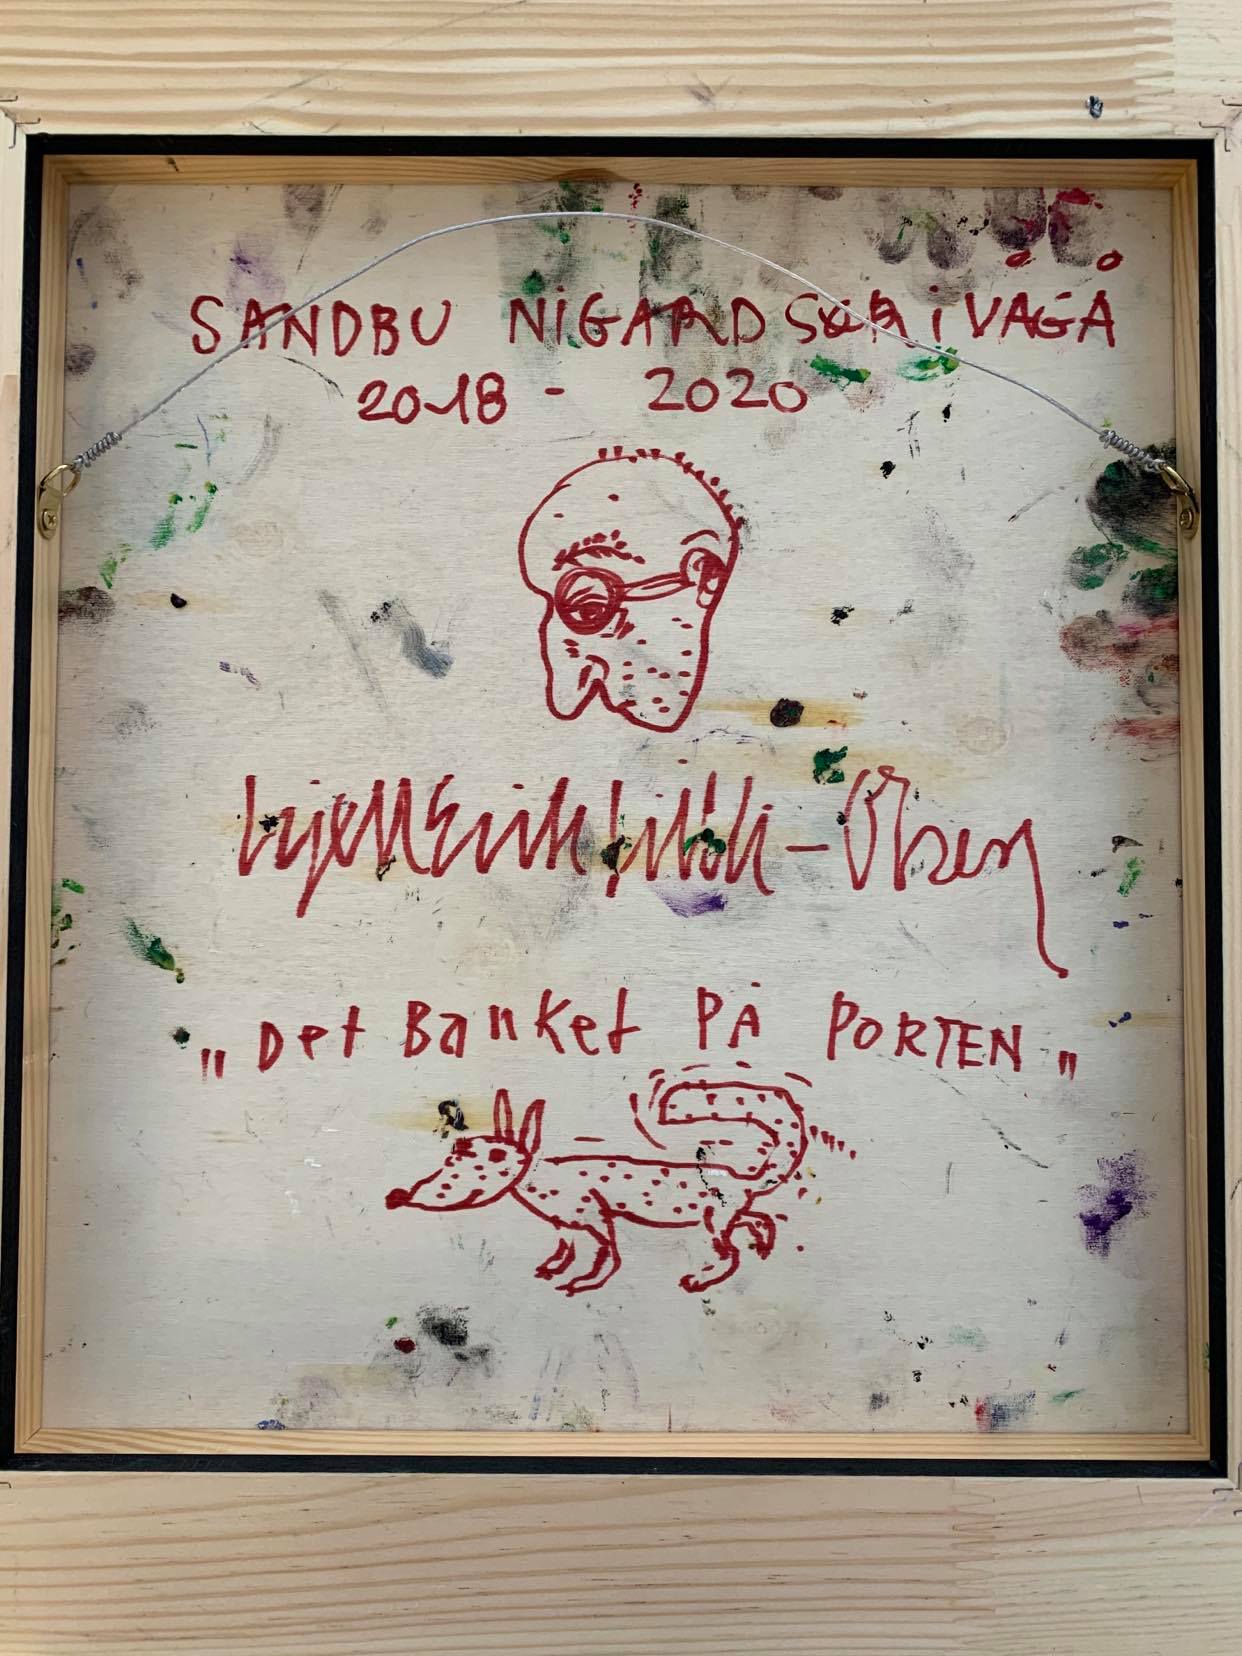 SANDBU NIGARD SKR I VÅGÅ
2018 - 2020
Kjell Erik Killi-Olsen
"Det Banket PÅ PORTEN"